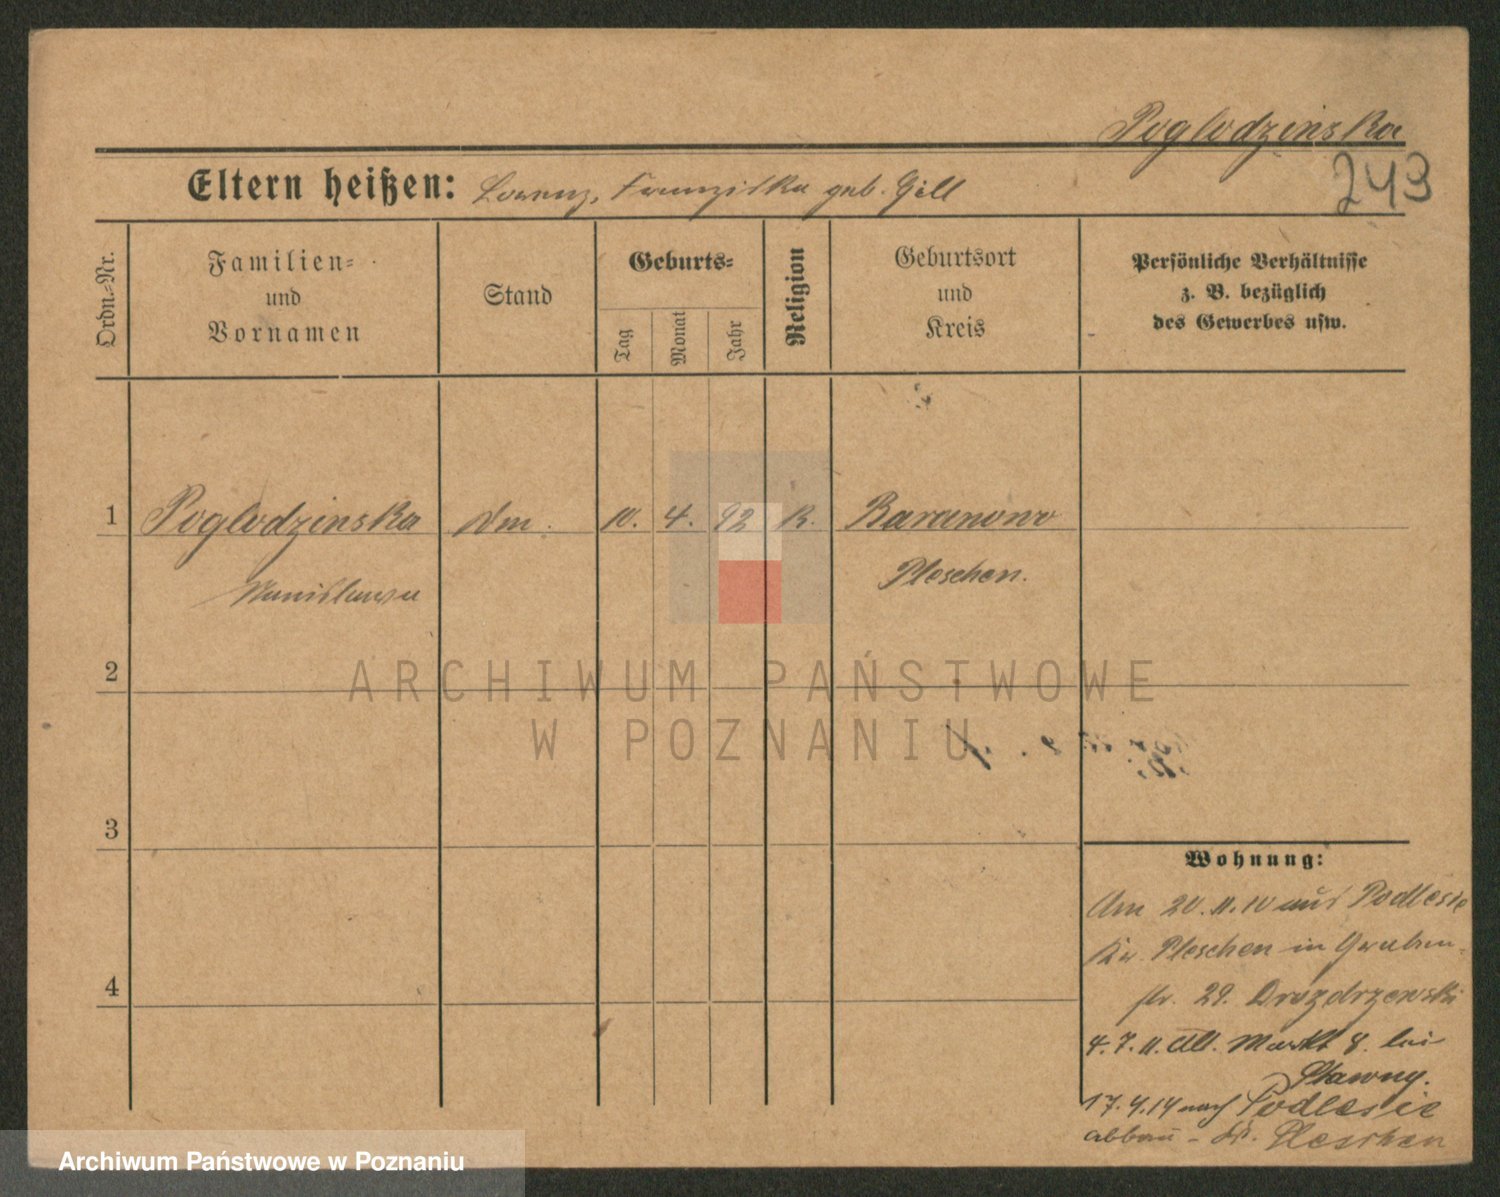 Poglodzinska
243
Eltern heißen: Lorenz, Franziska geb. Gill
Ordn.-Nr.
Familien- und Vornamen
Stand
Geburts-
Tag
Monat
Jahr
Religion
Geburtsort und Kreis
Persönliche Verhältnisse z. B. bezüglich des Gewerbes usw.
1 Poglodzinska 10. 4. 92 K. Baranowo
Stanislawa Pleschen.
2
3
4
Wohnung:
Am 20.11.10 aus Podlesie
Kr. Pleschen in Graben-
str. 29. Drozdrzewski
4.7.11. Alt. Markt 8. bei
Stawny.
17.4.14 nach Podlesie
abbau - Kr. Pleschen
ARCHIWUM PAŃSTWOWE
W POZNANIU
Archiwum Państwowe w Poznaniu